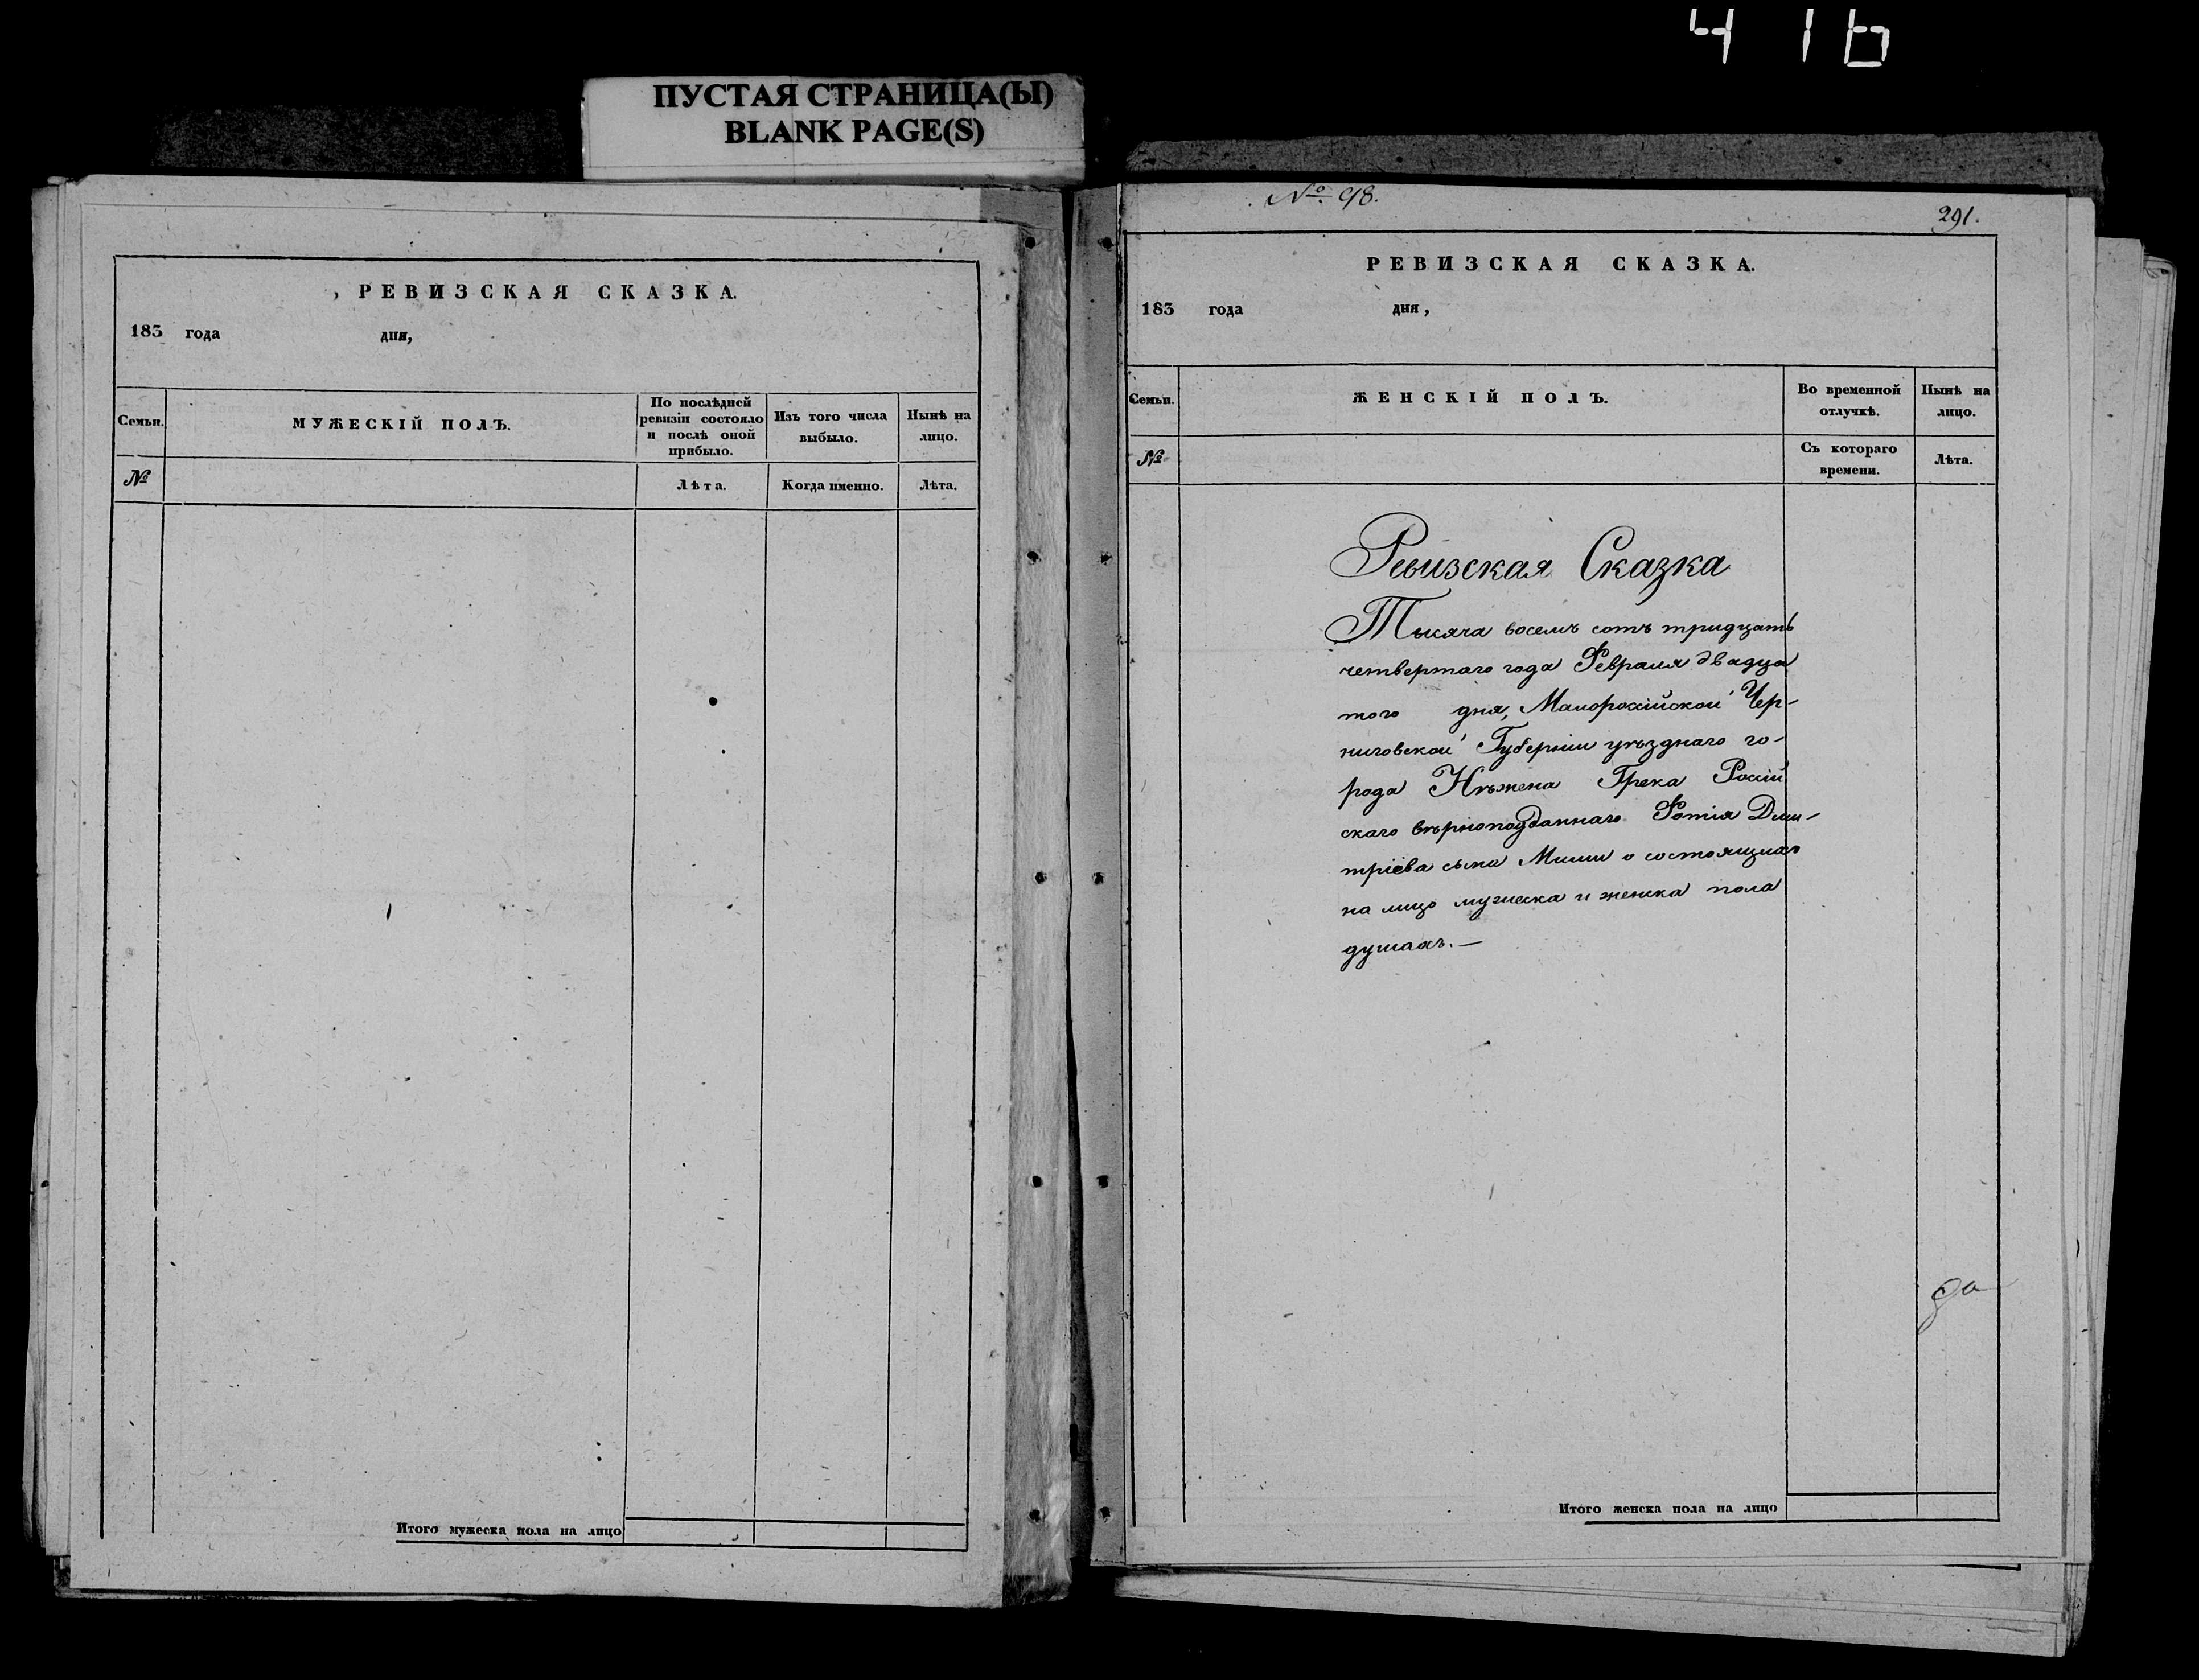 416
ПУСТАЯ СТРАНИЦА(Ы)
BLANK PAGE(S)
РЕВИЗСКАЯ СКАЗКА.
183 года дня,
Семьи.
МУЖЕСКІЙ ПОЛЪ.
По послѣдней
ревизіи состояло
и послѣ оной
прибыло.
Изъ того числа
выбыло.
Нынѣ на
лицо.
№
Лѣта.
Когда именно.
Лѣта.
Итого мужеска пола на лицо
№ 98.
291.
РЕВИЗСКАЯ СКАЗКА.
183 года дня,
Семьи.
ЖЕНСКІЙ ПОЛЪ.
Во временной
отлучкѣ.
Нынѣ на
лицо.
№
Съ котораго
времени.
Лѣта.
Ревизская Сказка
Тысяча восемъ сотъ тридцать
четвертаго года Февраля двадца
того дня, Малоросійской Чер-
ниговской Губерніи уѣзднаго го-
рода Нѣжена Грека Росій
скаго вѣрноподданнаго Фотія Дми-
тріева сына Мими о состоящихъ
на лицо мужеска и женска пола
душахъ. —
Итого женска пола на лицо